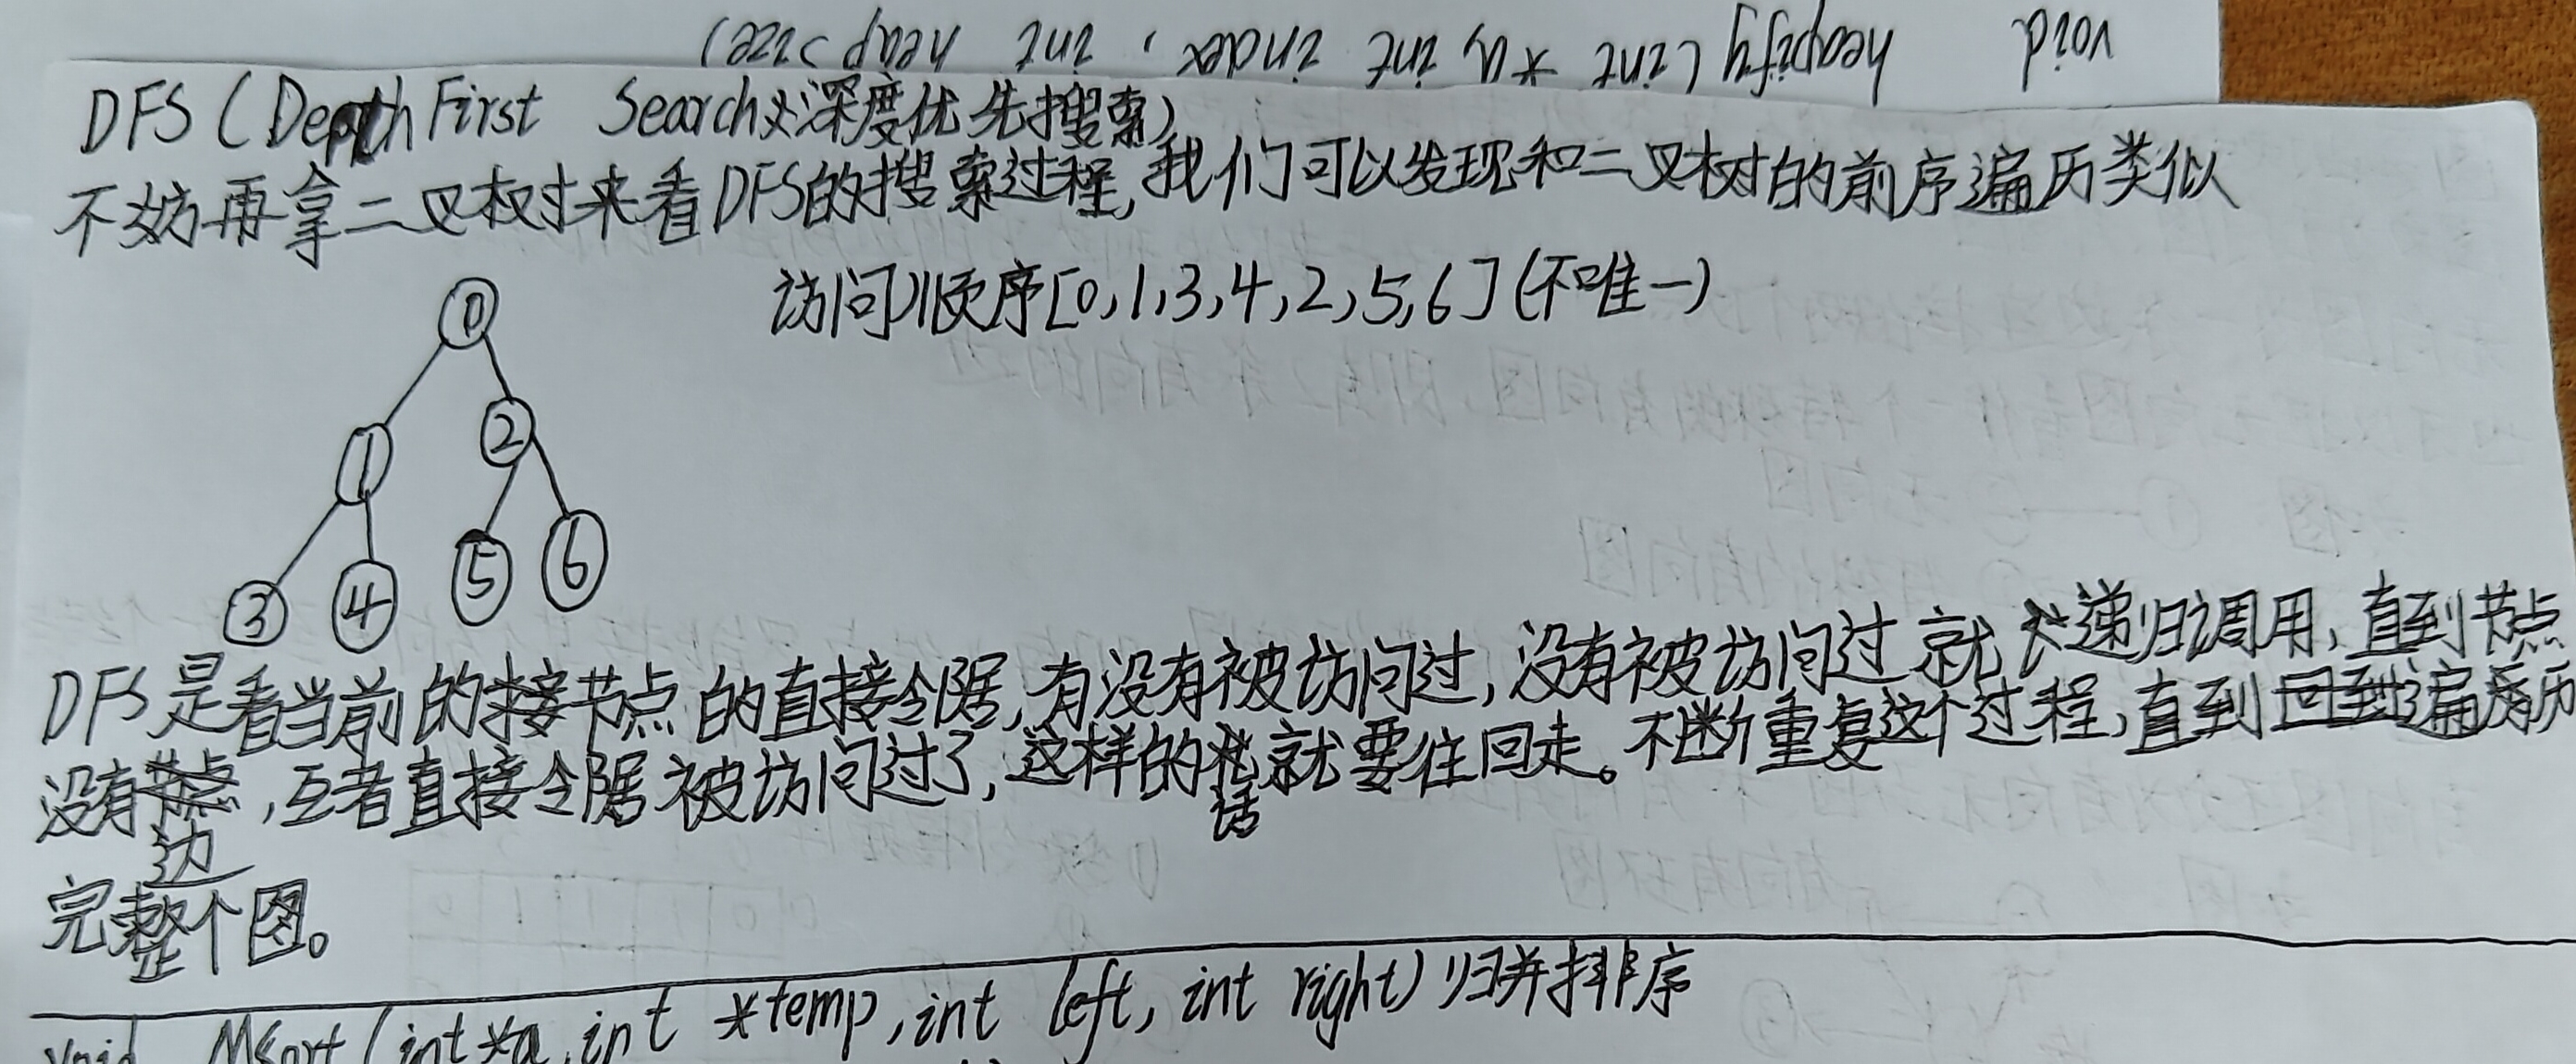 void heapify(int *a, int index, int heap size)
DFS(Depth First Search)(深度优先搜索)
不妨再拿二叉树来看DFS的搜索过程,我们可以发现和二叉树的前序遍历类似
访问顺序[0,1,3,4,2,5,6](不唯一)
0
1 2
3 4 5 6
DFS是看当前的接节点的直接邻居,有没有被访问过,没有被访问过就递归调用,直到节点
没有边,或者直接邻居被访问过了,这样的话就要往回走。不断重复这个过程,直到回到遍历
完整个图。
void Msort(int*a,int *temp,int left,int right)归并排序